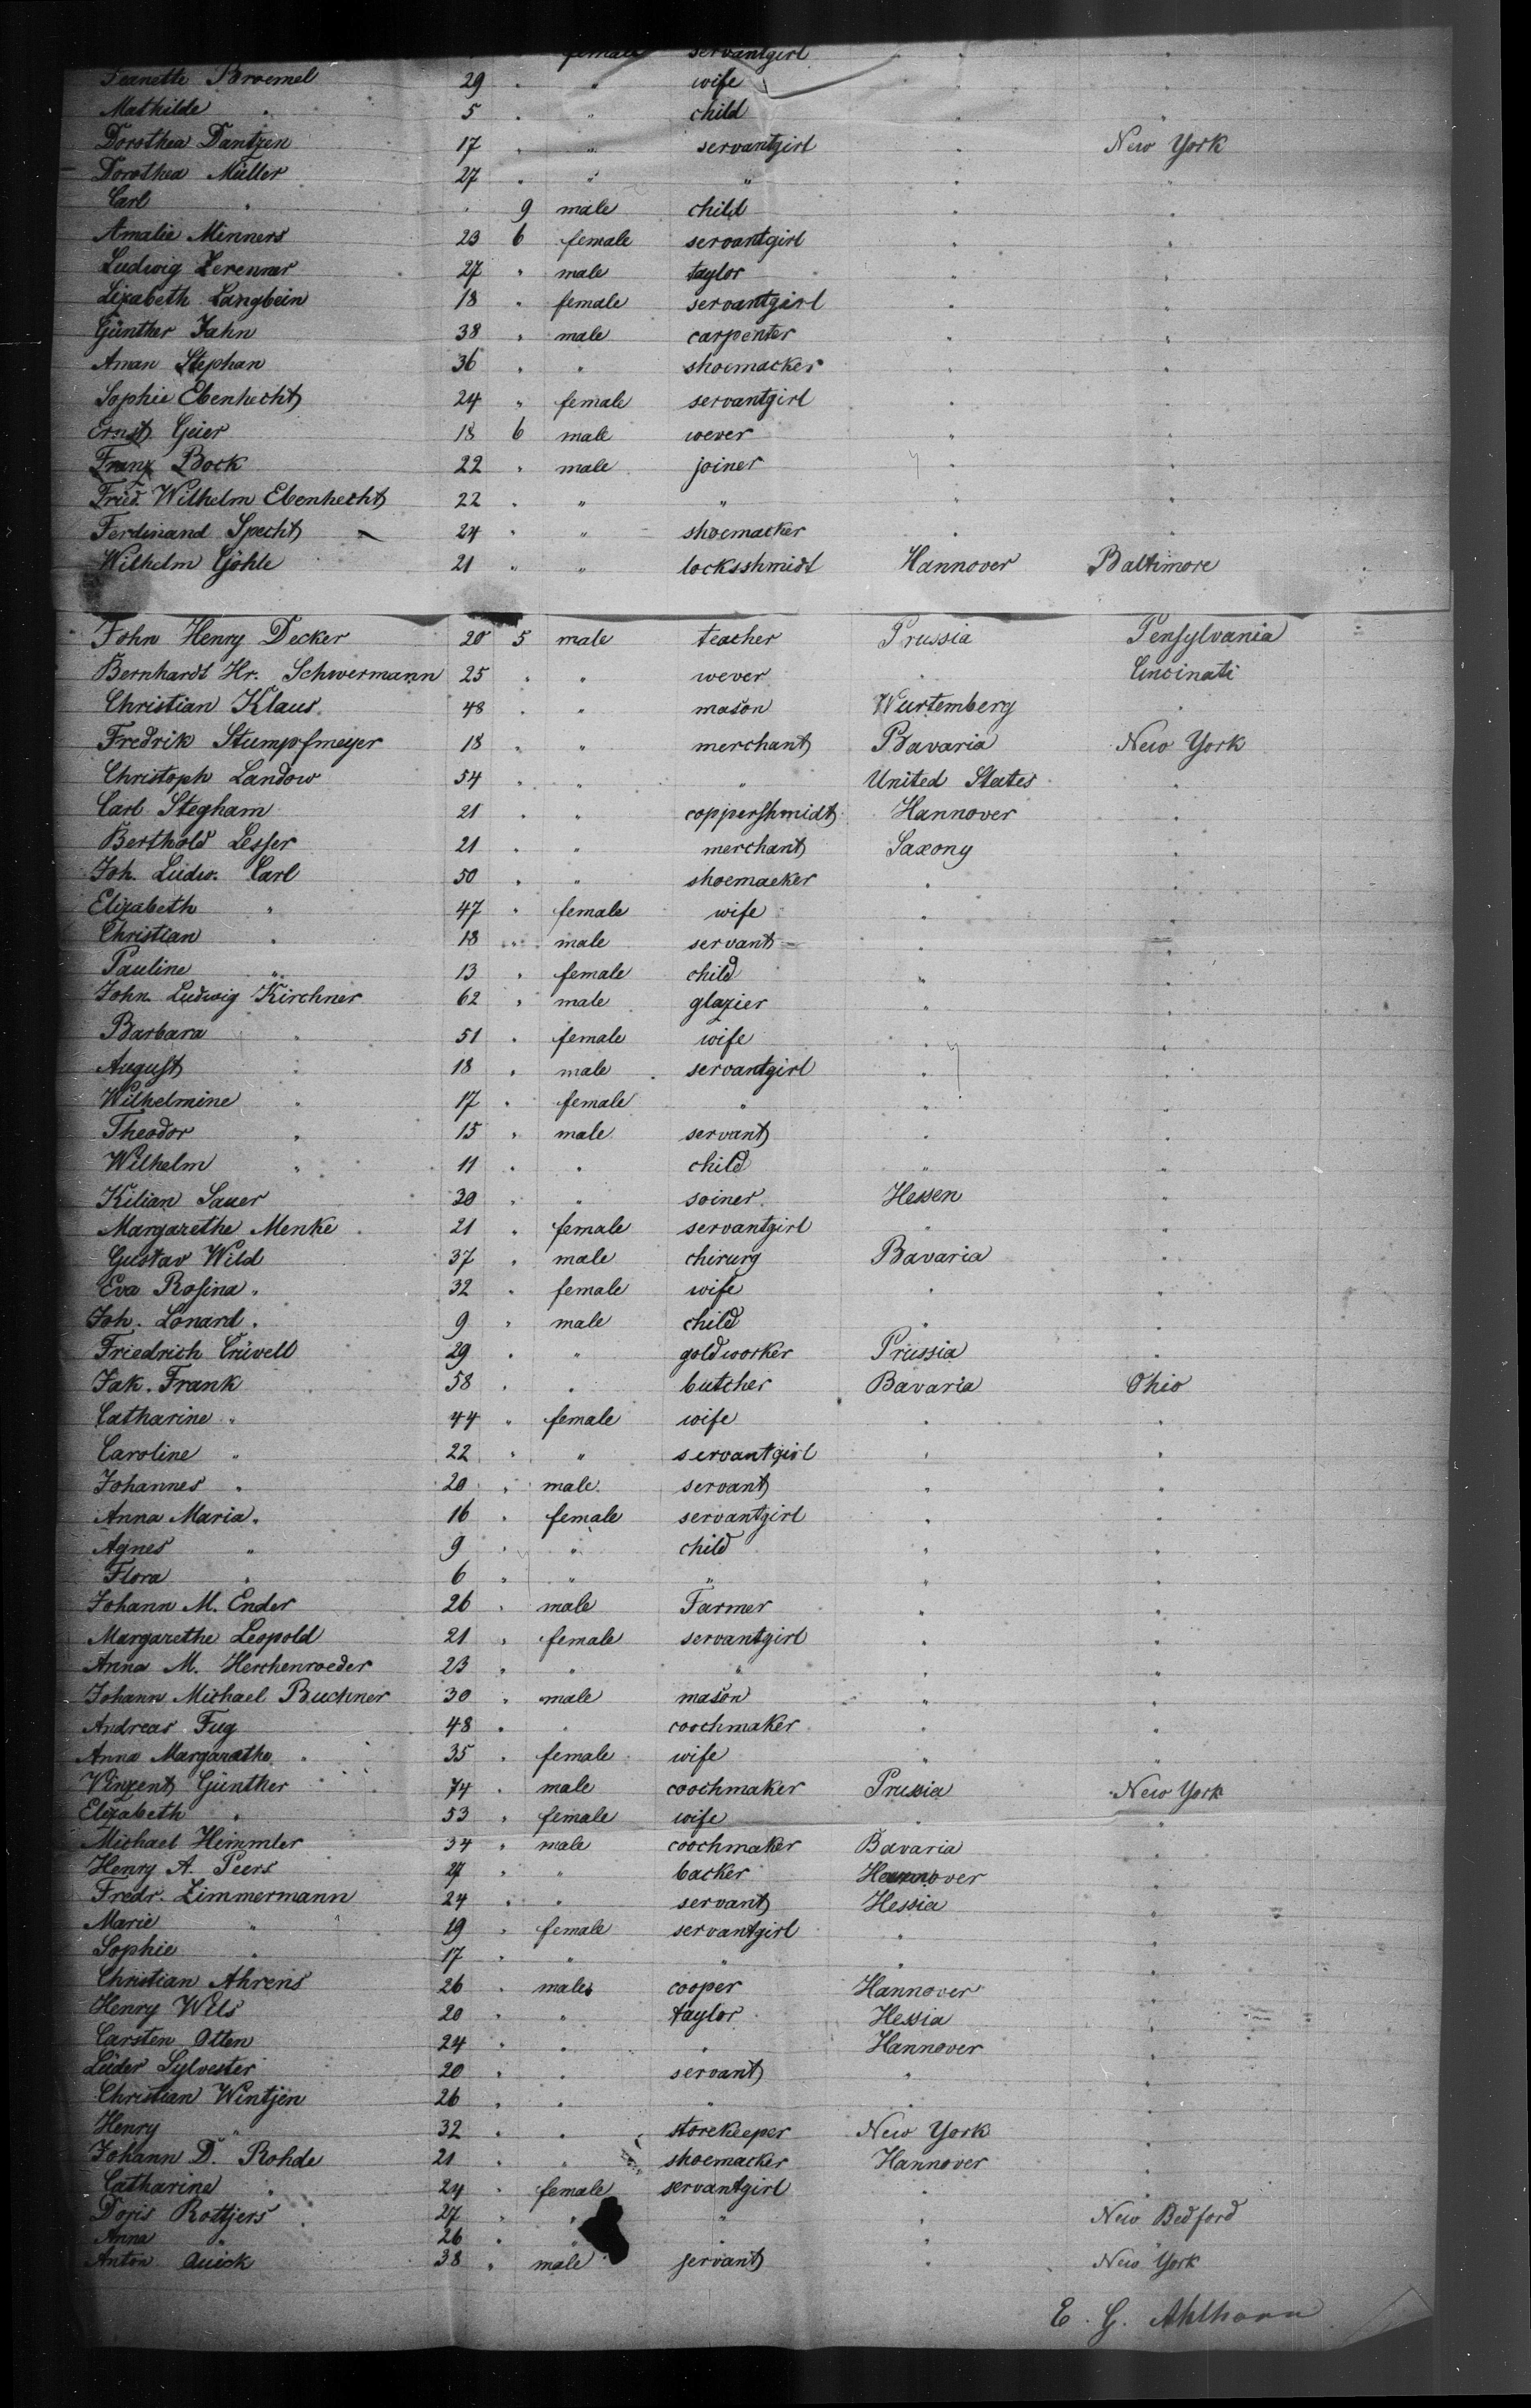 female servantgirl
Jeanette Broemel 29 " " wife " "
Mathilde " 5 " " child " "
Dorothea Dantzen 17 " " servantgirl " New York
Dorothea Müller 27 " " " " "
Carl " " 9 male child " "
Amalie Minners 23 6 female servantgirl " "
Ludwig 27 " male taylor " "
Lizabeth Langbein 18 " female servantgirl " "
Günther Jahn 38 " male carpenter " "
Aman Stephan 36 " " shoemacker " "
Sophie Ebenhecht 24 " female servantgirl " "
Ernst Geier 18 6 male wever " "
Franz Bock 22 " male joiner " "
Fried. Wilhelm Ebenhecht 22 " " " " "
Ferdinand Specht 24 " " shoemacker " "
Wilhelm Göhle 21 " " locksshmidt Hannover Baltimore
John Henry Decker 20 5 male teacher Prussia Pensylvania
Bernhardt Hr. Schwermann 25 " " wever " Cincinati
Christian Klaus 48 " " mason Wurtemberg "
Fredrik Stumpfmeyer 18 " " merchant Bavaria New York
Christoph Landow 54 " " " United States "
Carl Stegham 21 " " coppershmidt Hannover "
Berthold Lesser 21 " " merchant Saxony "
Joh. Ludw. Carl 50 " " shoemacker " "
Elizabeth " 47 " female wife " "
Christian " 18 " male servant " "
Pauline " 13 " female child " "
John Ludwig Kirchner 62 " male glazier " "
Barbara " 51 " female wife " "
August " 18 " male servantgirl " "
Wilhelmine " 17 " female " " "
Theodor " 15 " male servant " "
Wilhelm " 11 " " child " "
Kilian Sauer 30 " " soiner Hessen "
Margarethe Menke 21 " female servantgirl " "
Gustav Wild 37 " male chirurg Bavaria "
Eva Rosina " 32 " female wife " "
Joh. Lonard " 9 " male child " "
Friedrich Crüvell 29 " " goldworker Prussia "
Jak. Frank 58 " " butcher Bavaria Ohio
Catharine " 44 " female wife " "
Caroline " 22 " " servantgirl " "
Johannes " 20 " male servant " "
Anna Maria " 16 " female servantgirl " "
Agnes " 9 " " child " "
Flora " 6 " " " " "
Johann M. Ender 26 " male Farmer " "
Margarethe Leopold 21 " female servantgirl " "
Anna M. Herchenroeder 23 " " " " "
Johann Michael Buchner 30 " male mason " "
Andreas Fug 48 " " coochmaker " "
Anna Margarathe " 35 " female wife " "
Vinzent Günther 74 " male coochmaker Prussia New York
Elizabeth " 53 " female wife " "
Michael Himmler 34 " male coochmaker Bavaria "
Henry A. Peers 27 " " backer Hannover "
Fredr. Zimmermann 24 " " servant Hessia "
Marie " 19 " female servantgirl " "
Sophie " 17 " " " " "
Christian Ahrens 26 " males cooper Hannover "
Henry Wils 20 " " taylor Hessia "
Carsten Otten 24 " " " Hannover "
Lüder Sylvester 20 " " servant " "
Christian Wintjen 26 " " " " "
Henry " 32 " " storekeeper New York "
Johann D. Rohde 21 " " shoemacker Hannover "
Catharine " 24 " female servantgirl " "
Doris Rottjers 27 " " " " New Bedford
Anna " 26 " " " " "
Anton Quick 38 " male servant " New York
E. G. Ahlhorn